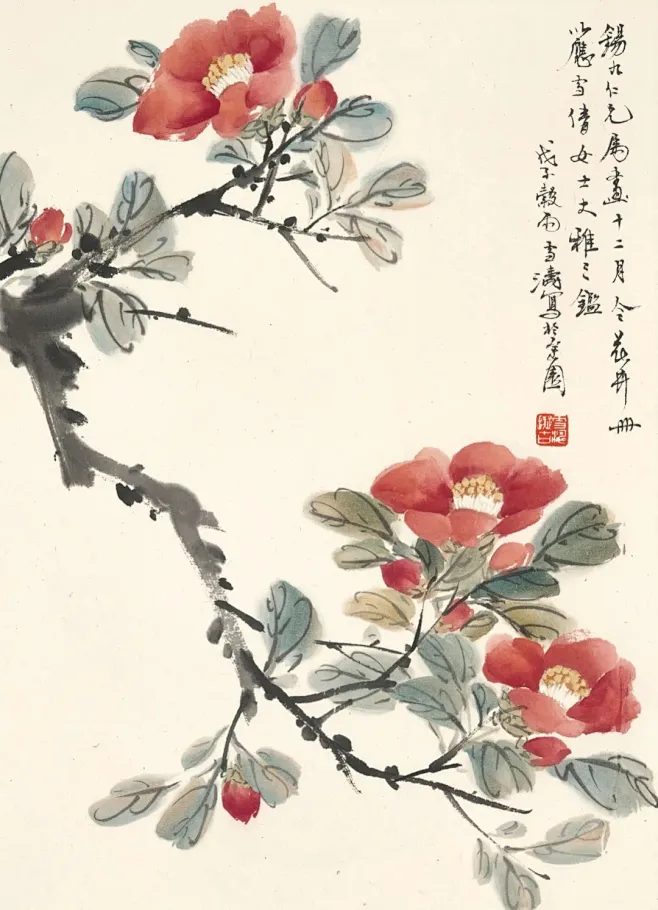 錫九仁兄屬畫十二月令花卉冊
以應雪倩女士大雅之鑑
戊子穀雨雪濤寫於園